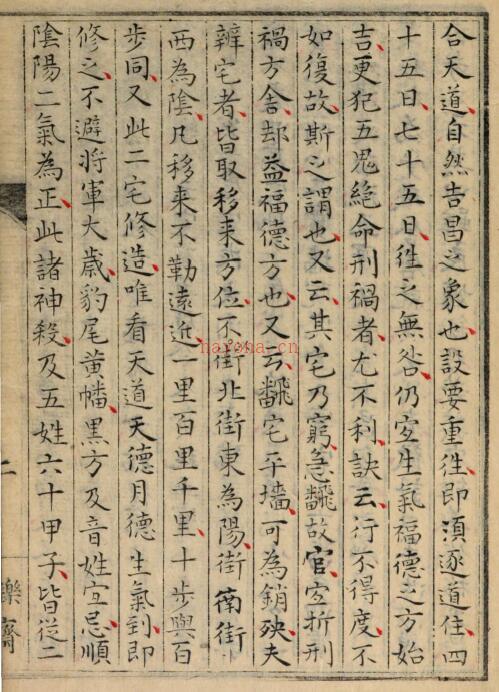 合天道自然吉昌之象也設要重徃即湏逐道住四
十五日七十五日徃之無咎仍宜生氣福德之方始
吉更犯五鬼絶命刑禍者尤不利訣云行不得度不
如復故斯之謂也又云其宅乃窮急飜故官宜折刑
禍方舍却益福德方也又云飜宅平墻可為銷殃夫
辨宅者皆取移来方位不街北街東為陽街南街
西為隂凡移来不勒遠近一里百里千里十步與百
步同又此二宅修造唯看天道天德月德生氣到即
修之不避將軍大歲豹尾黄幡黑方及音姓宜忌順
隂陽二氣為正此諸神殺及五姓六十甲子皆從二
二
樂齋